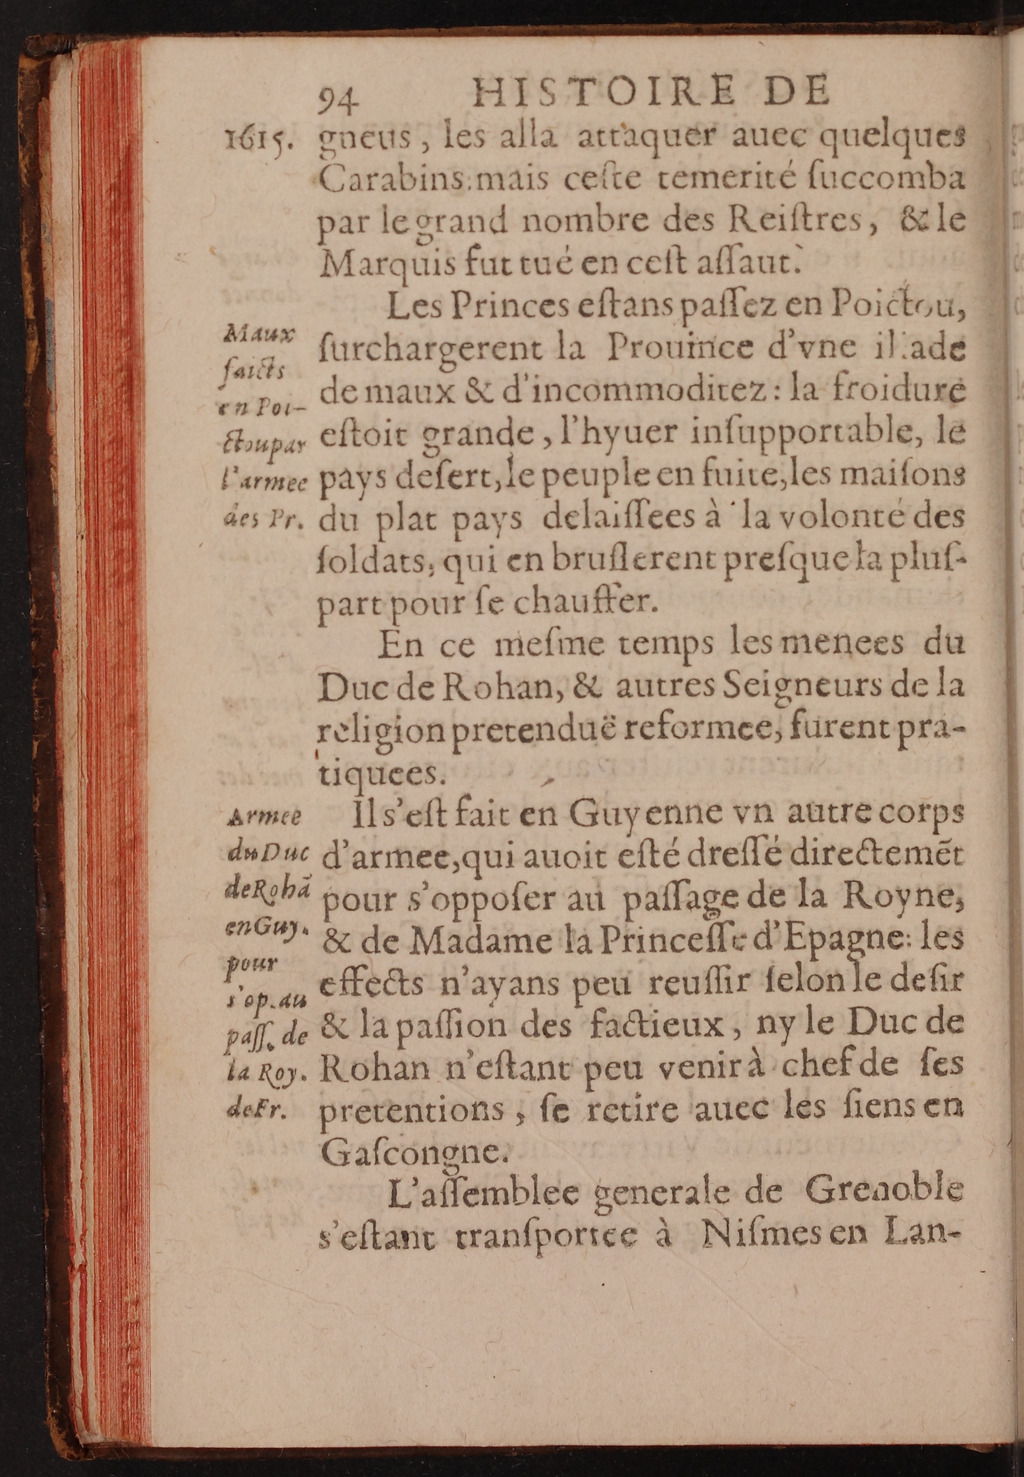 94 HISTOIRE DE
1615. gneus, les alla attaquer auec quelques
Carabins: mais ceſte temerité ſuccomba
par le grand nombre des Reiſtres, & le
Marquis fut tué en ceſt aſſaut.
Les Princes eſtans paſſez en Poictou,
ſurchargerent la Prouince d'vne iliade
de maux & d'incommoditez: la froidure
eſtoit grande, l'hyuer inſupportable, le
pays deſert, le peuple en fuite, les maiſons
du plat pays delaiſſees à la volonté des
ſoldats, qui en bruſlerent preſque la pluſ-
part pour ſe chauffer.
Maux
faicts
en Poi-
ctou par
l'armee
des Pr.
En ce meſme temps les menees du
Duc de Rohan, & autres Seigneurs de la
religion pretenduë reformee, furent pra-
tiquees.
Il s'eſt fait en Guyenne vn autre corps
d'armee, qui auoit eſté dreſſé directemẽt
pour s'oppoſer au paſſage de la Royne,
& de Madame la Princeſſe d'Epagne: les
effects n'ayans peu reuſſir ſelon le deſir
& la paſſion des factieux, ny le Duc de
Rohan n'eſtant peu venir à chef de ſes
pretentions, ſe retire auec les ſiens en
Gaſcongne.
Armee
du Duc
de Rohã
en Guy.
pour
s'op. au
paſſ. de
la Roy.
de Fr.
L'aſſemblee generale de Grenoble
s'eſtant tranſportee à Niſmes en Lan-